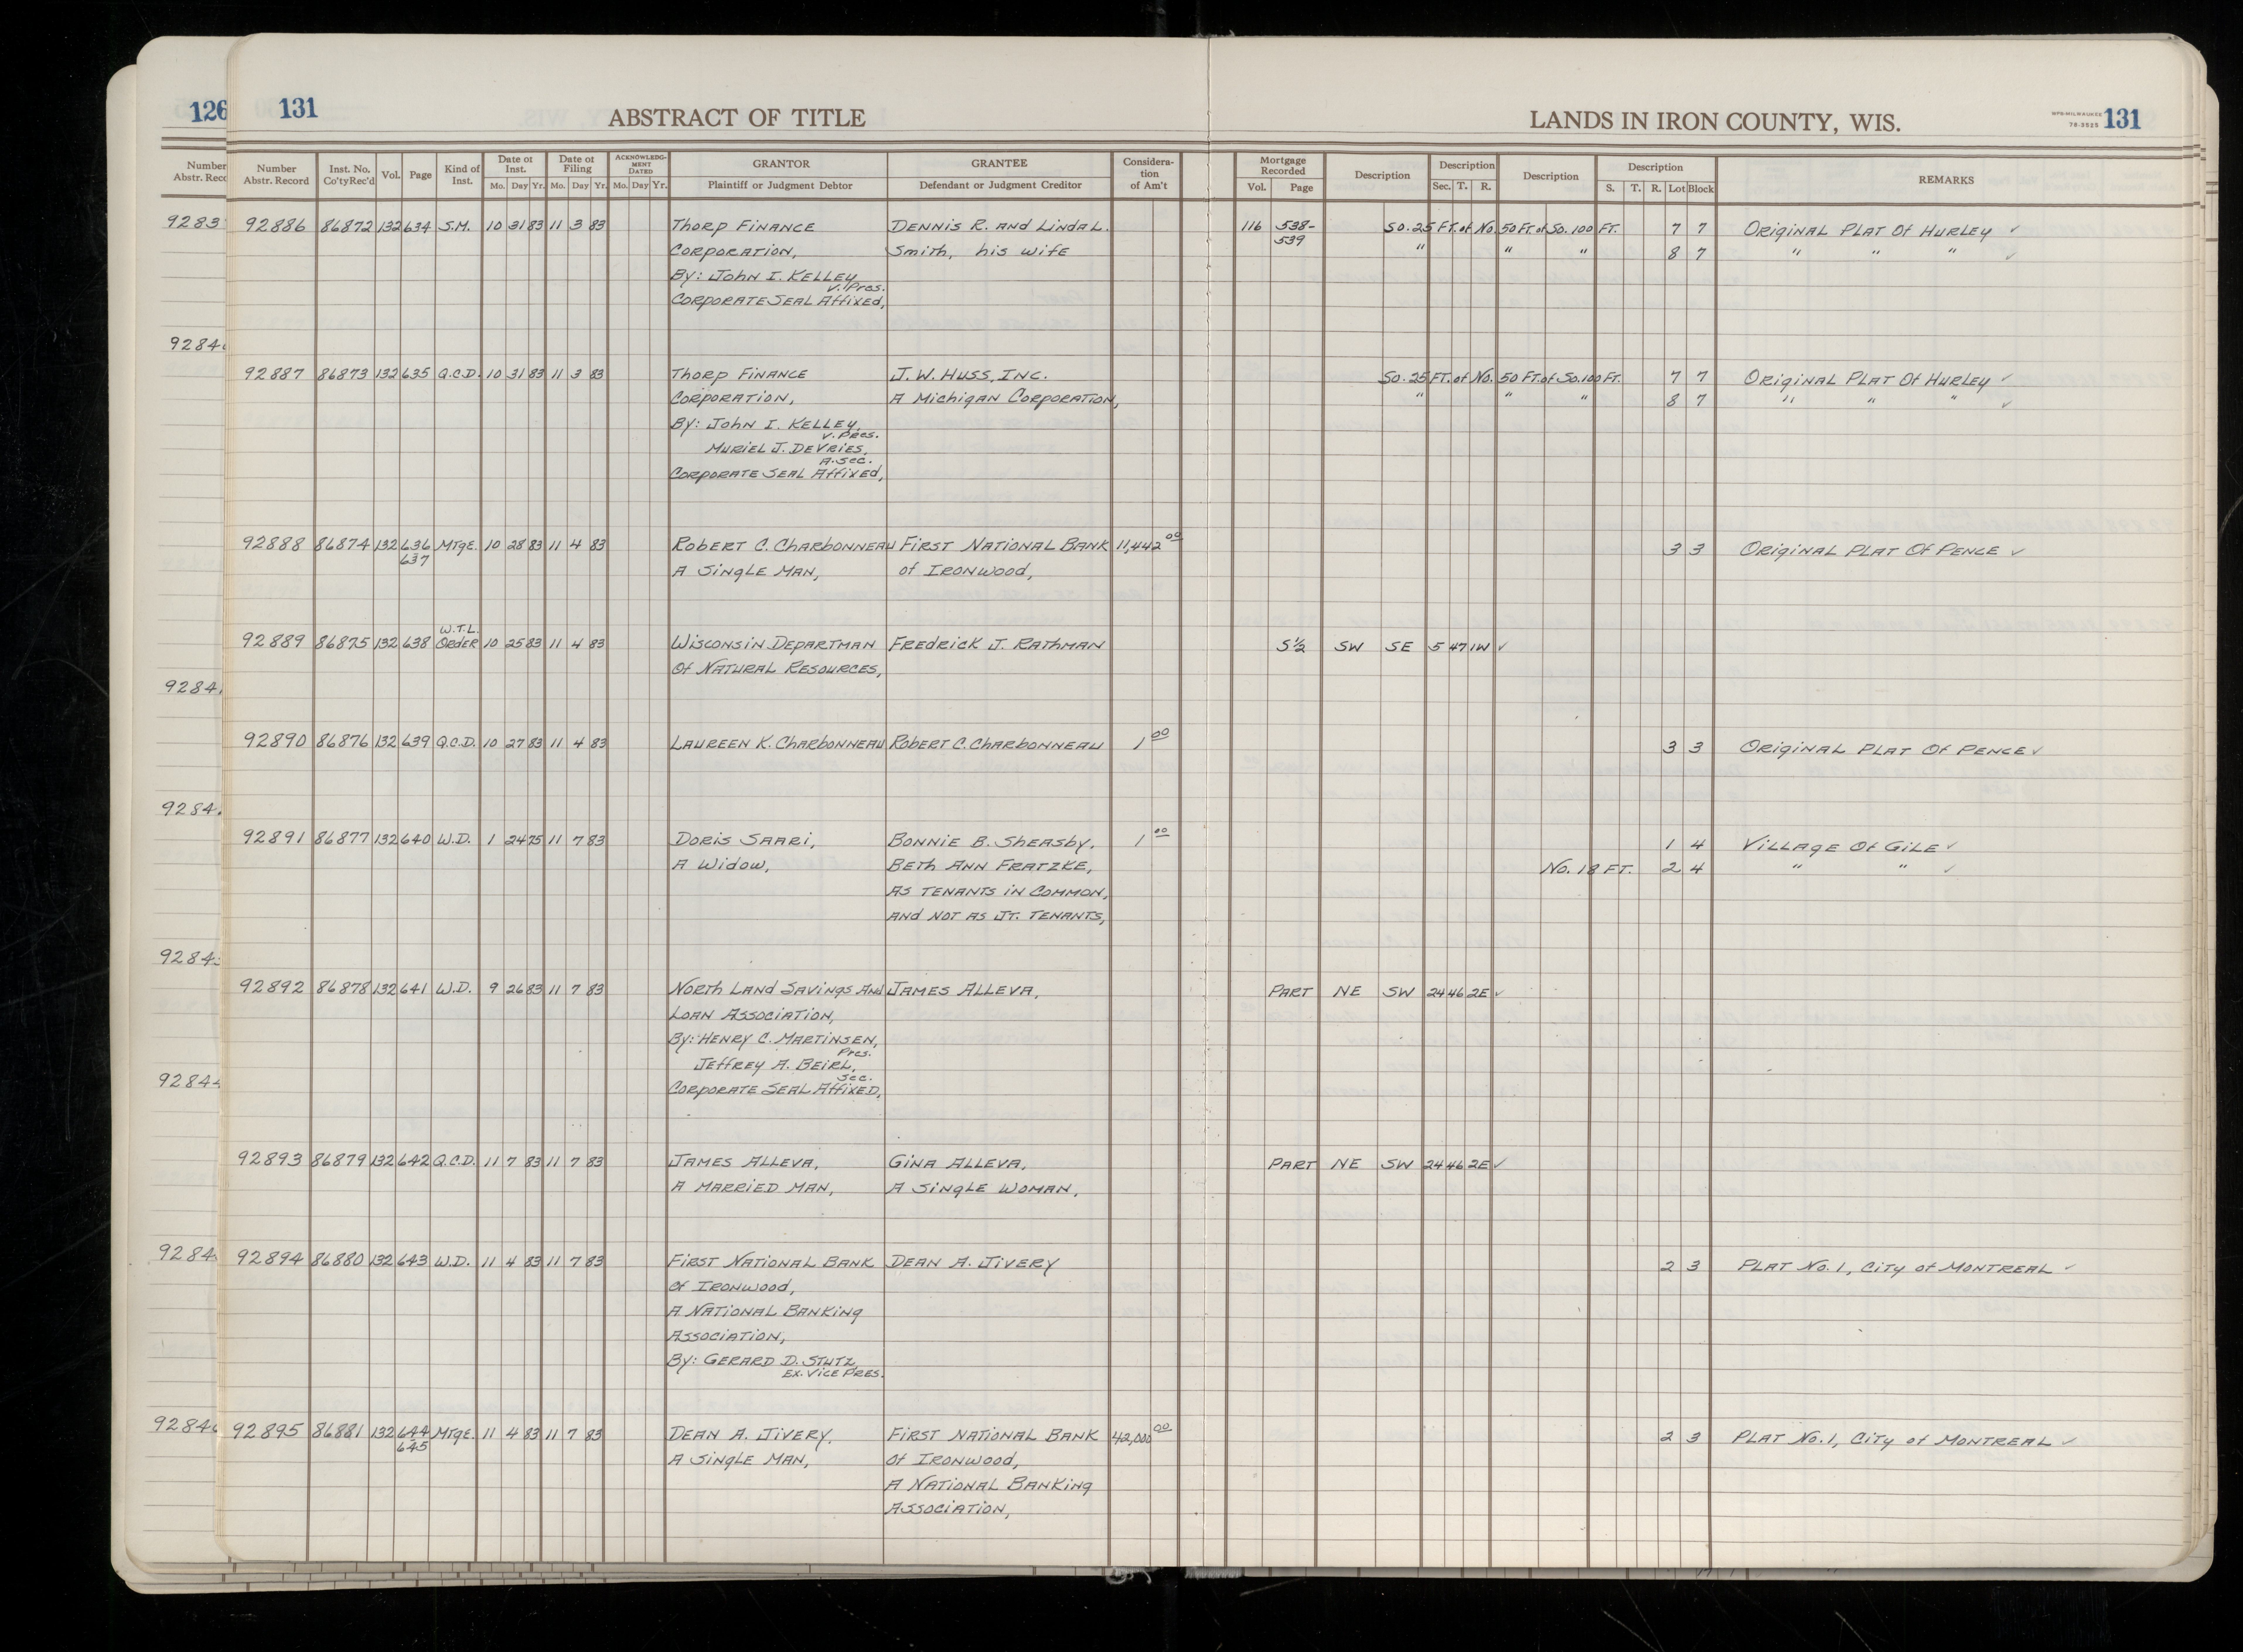 126 131 ABSTRACT OF TITLE LANDS IN IRON COUNTY, WIS. WPS-MILWAUKEE 78-2525 131
Number Abstr. Reco Number Abstr. Record Inst. No. Co'tyRec'd Vol. Page Kind of Inst. Date of Inst. Mo. Day Yr. Date of Filing Mo. Day Yr. ACKNOWLEDG-MENT DATED Mo. Day Yr. GRANTOR Plaintiff or Judgment Debtor GRANTEE Defendant or Judgment Creditor Considera-tion of Am't Mortgage Recorded Vol. Page Description Description Sec. T. R. Description Description S. T. R. Lot Block REMARKS
9283 92886 86872 132 634 S.M. 10 31 83 11 3 83 Thorp Finance Dennis R. and Linda L. 116 538- So. 25 FT. of No. 50 FT. of So. 100 FT. 7 7 Original Plat Of Hurley ✓
Corporation, Smith, his wife 539 " " " 8 7 " " " ✓
By: John I. Kelley,
V. Pres.
Corporate Seal Affixed,
9284
92887 86873 132 635 Q.C.D. 10 31 83 11 3 83 Thorp Finance J. W. Huss, Inc. So. 25 FT. of No. 50 FT. of So. 100 FT. 7 7 Original Plat Of Hurley ✓
Corporation, A Michigan Corporation, " " " 8 7 " " " ✓
By: John I. Kelley,
V. Pres.
Muriel J. DeVries,
A. Sec.
Corporate Seal Affixed,
92888 86874 132 636 Mtge. 10 28 83 11 4 83 Robert C. Charbonneau First National Bank 11,442 00 3 3 Original Plat Of Pence ✓
637 A Single Man, of Ironwood,
W.T.L.
92889 86875 132 638 Order 10 25 83 11 4 83 Wisconsin Departman Fredrick J. Rathman S½ SW SE 5 47 1W ✓
Of Natural Resources,
9284
92890 86876 132 639 Q.C.D. 10 27 83 11 4 83 Laureen K. Charbonneau Robert C. Charbonneau 1 00 3 3 Original Plat Of Pence ✓
9284
92891 86877 132 640 W.D. 1 24 75 11 7 83 Doris Saari, Bonnie B. Sheasby, 1 00 1 4 Village Of Gile ✓
A Widow, Beth Ann Fratzke, No. 18 FT. 2 4 " " ✓
As Tenants in Common,
And not as Jt. Tenants,
9284
92892 86878 132 641 W.D. 9 26 83 11 7 83 North Land Savings And James Alleva, Part NE SW 24 46 2E ✓
Loan Association,
By: Henry C. Martinsen,
Pres.
Jeffrey A. Beirl,
Sec.
9284 Corporate Seal Affixed,
92893 86879 132 642 Q.C.D. 11 7 83 11 7 83 James Alleva, Gina Alleva, Part NE SW 24 46 2E ✓
A Married Man, A Single Woman,
9284 92894 86880 132 643 W.D. 11 4 83 11 7 83 First National Bank Dean A. Jivery 2 3 Plat No. 1, City of Montreal ✓
Of Ironwood,
A National Banking
Association,
By: Gerard D. Stutz,
Ex. Vice Pres.
9284 92895 86881 132 644 Mtge. 11 4 83 11 7 83 Dean A. Jivery, First National Bank 42,000 00 2 3 Plat No. 1, City of Montreal ✓
645 A Single Man, Of Ironwood,
A National Banking
Association,